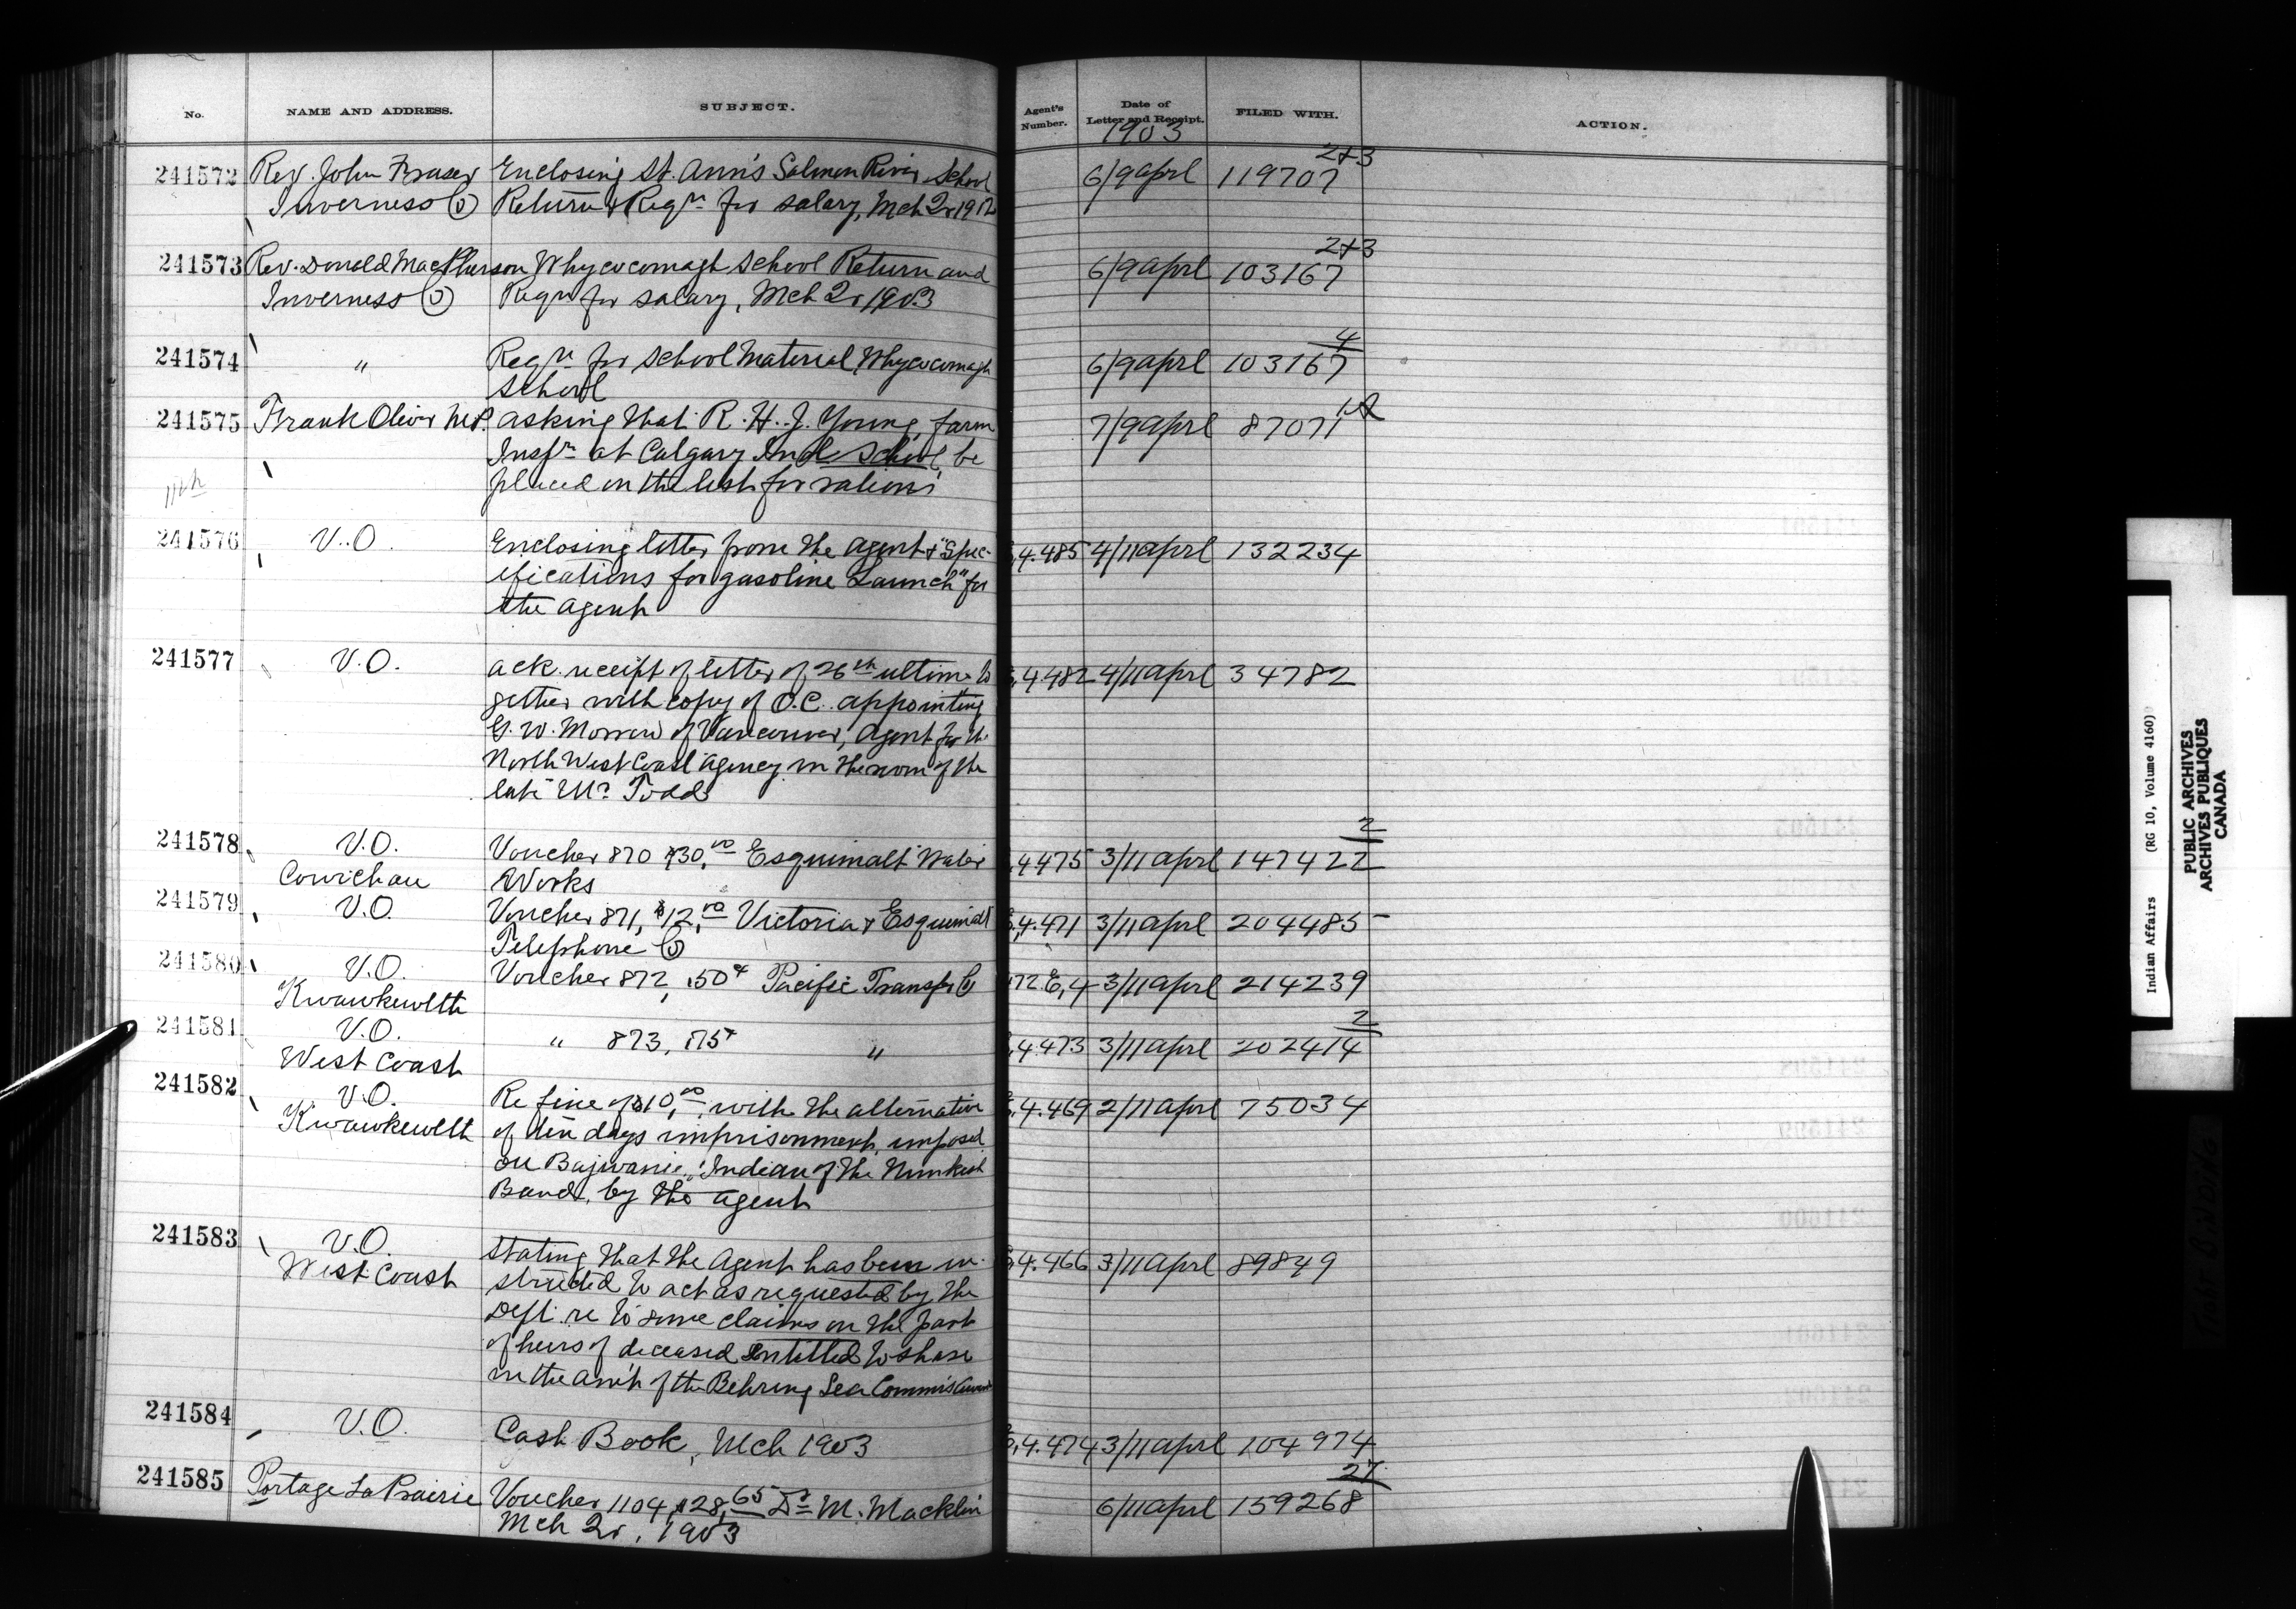 No. NAME AND ADDRESS. SUBJECT. Agent's Number. Date of Letter and Receipt. FILED WITH. ACTION.
1903
241572 Rev. John Fraser Enclosing St. Ann's Salmon River School 6/9 aprl 119707 2+3
Inverness Co Return & Reqn for salary, Mch 2r 19
241573 Rev. Donald MacPherson Whycocomagh School Return and 6/9 aprl 103167 2+3
Inverness Co Reqn for salary, Mch 2r 1903
241574 " Reqn for School Material Whycocomagh 6/9 aprl 103167 4
School
241575 Frank Oliver M.P. asking that R. H. J. Young, farm 7/9 aprl 87071
Instr at Calgary Indl School, be
placed on the list for rations
241576 V.O. Enclosing letter from the agent & "Spec- 4.485 4/11 aprl 132234
ifications for gasoline Launch" for
the agent
241577 V.O. ack. receipt of letter of 26th ultimo to 4.482 4/11 aprl 34782
gether with copy of O.C. appointing
G. W. Morrow of Vancouver, Agent for the
North West Coast Agency in the room of the
late Mr Todd
241578 V.O. Voucher 870 $30.00 Esquimalt Water 4475 3/11 aprl 147422 2
Cowichan Works
241579 V.O. Voucher 871, $12.00 Victoria & Esquimalt 4.471 3/11 aprl 204485
Telephone Co
241580 V.O. Voucher 872, .50 Pacific Transfer Co 472 E,4 3/11 aprl 214239
Kwawkewlth
241581 V.O. " 873, .75 " 4473 3/11 aprl 202414 2
West Coast
241582 V.O. Re fine of $10.00, with the alternative 4.469 2/11 aprl 75034
Kwawkewlth of ten days imprisonment, imposed
on Indian of the Nimkish
Band, by the agent
241583 V.O. Stating that the Agent has been in- 4.466 3/11 aprl 89849
West Coast structed to act as requested by the
Dept. re to some claims on the part
of heirs of deceased entitled to share
in the am't of the Behring Sea Commis
241584 V.O. Cash Book, Mch 1903 4.474 3/11 aprl 104974
241585 Portage La Prairie Voucher 1104, $28.65 Dr M. Macklin 6/11 aprl 159268 27
Mch 2r, 1903
Indian Affairs (RG 10, Volume 4160)
PUBLIC ARCHIVES
ARCHIVES PUBLIQUES
CANADA